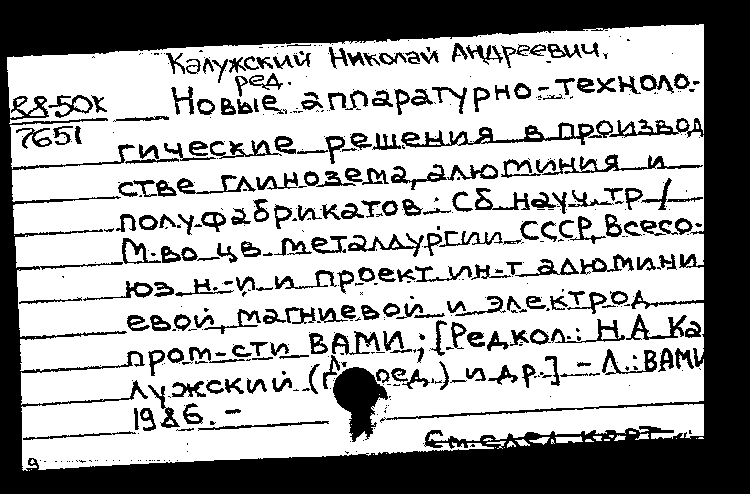 Калужский Николай Андреевич,
ред.
88-50к
7651
Новые аппаратурно-техноло-
гические решения в производ
стве глинозема, алюминия и
полуфабрикатов: Сб. науч. тр /
М-во цв. металлургии СССР, Всесо-
юз. н.-и и проект ин-т алюмини
евой, магниевой и электрод
пром-сти ВАМИ; [Редкол.: Н.А Ка
лужский ( ред.) и др.] - Л.: ВАМИ
1986. -
См. след. карт.
9